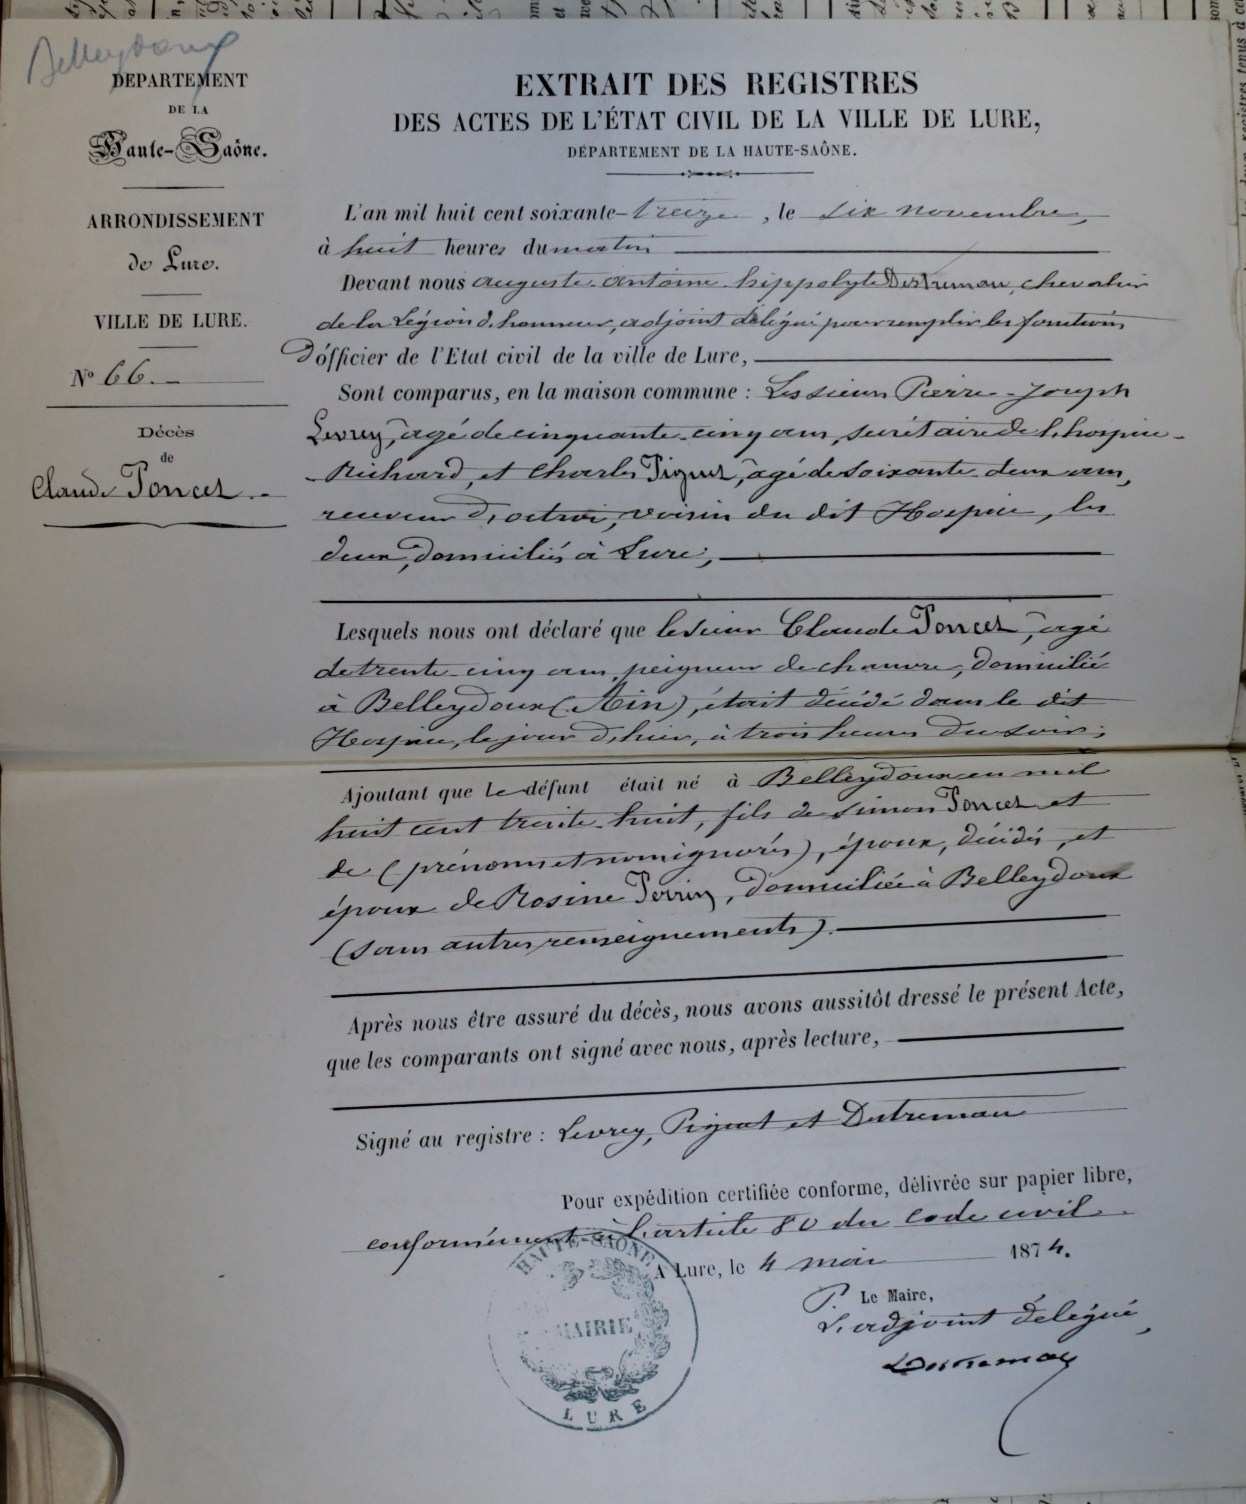 Belleydoux
DEPARTEMENT
DE LA
Haute-Saône.
ARRONDISSEMENT
de Lure.
VILLE DE LURE.
N° 66.
Décès
de
Claude Poncet.
EXTRAIT DES REGISTRES
DES ACTES DE L'ÉTAT CIVIL DE LA VILLE DE LURE,
DÉPARTEMENT DE LA HAUTE-SAÔNE.
L'an mil huit cent soixante-treize, le six novembre,
à huit heures du matin
Devant nous auguste antoine hippolyte Destremau, chevalier
de la Légion d'honneur, adjoint délégué pour remplir les fonctions
D'officier de l'Etat civil de la ville de Lure,
Sont comparus, en la maison commune : Les sieurs Pierre-Joseph
Levrey, âgé de cinquante-cinq ans, secrétaire de l'hospice
Richard, et Charles Piguet, âgé de soixante-deux ans,
receveur d'octroi, voisin du dit Hospice, les
deux, domiciliés à Lure;
Lesquels nous ont déclaré que le sieur Claude Poncet, âgé
de trente-cinq ans, peigneur de chanvre, domicilié
à Belleydoux (Ain), était décédé dans le dit
Hospice, le jour d'hier, à trois heures du soir;
Ajoutant que le défunt était né à Belleydoux en mil
huit cent trente-huit, fils de Simon Poncet et
de (prénoms et nom ignorés), époux, décédés, et
époux de Rosine Perrin, domiciliée à Belleydoux
(sans autres renseignements).
Après nous être assuré du décès, nous avons aussitôt dressé le présent Acte,
que les comparants ont signé avec nous, après lecture,
Signé au registre : Levrey, Piguet et Destremau
Pour expédition certifiée conforme, délivrée sur papier libre,
conformément à l'article 80 du code civil.
A Lure, le 4 mai 1874.
P. Le Maire,
L'adjoint délégué,
Destremau
HAUTE-SAÔNE
MAIRIE
LURE